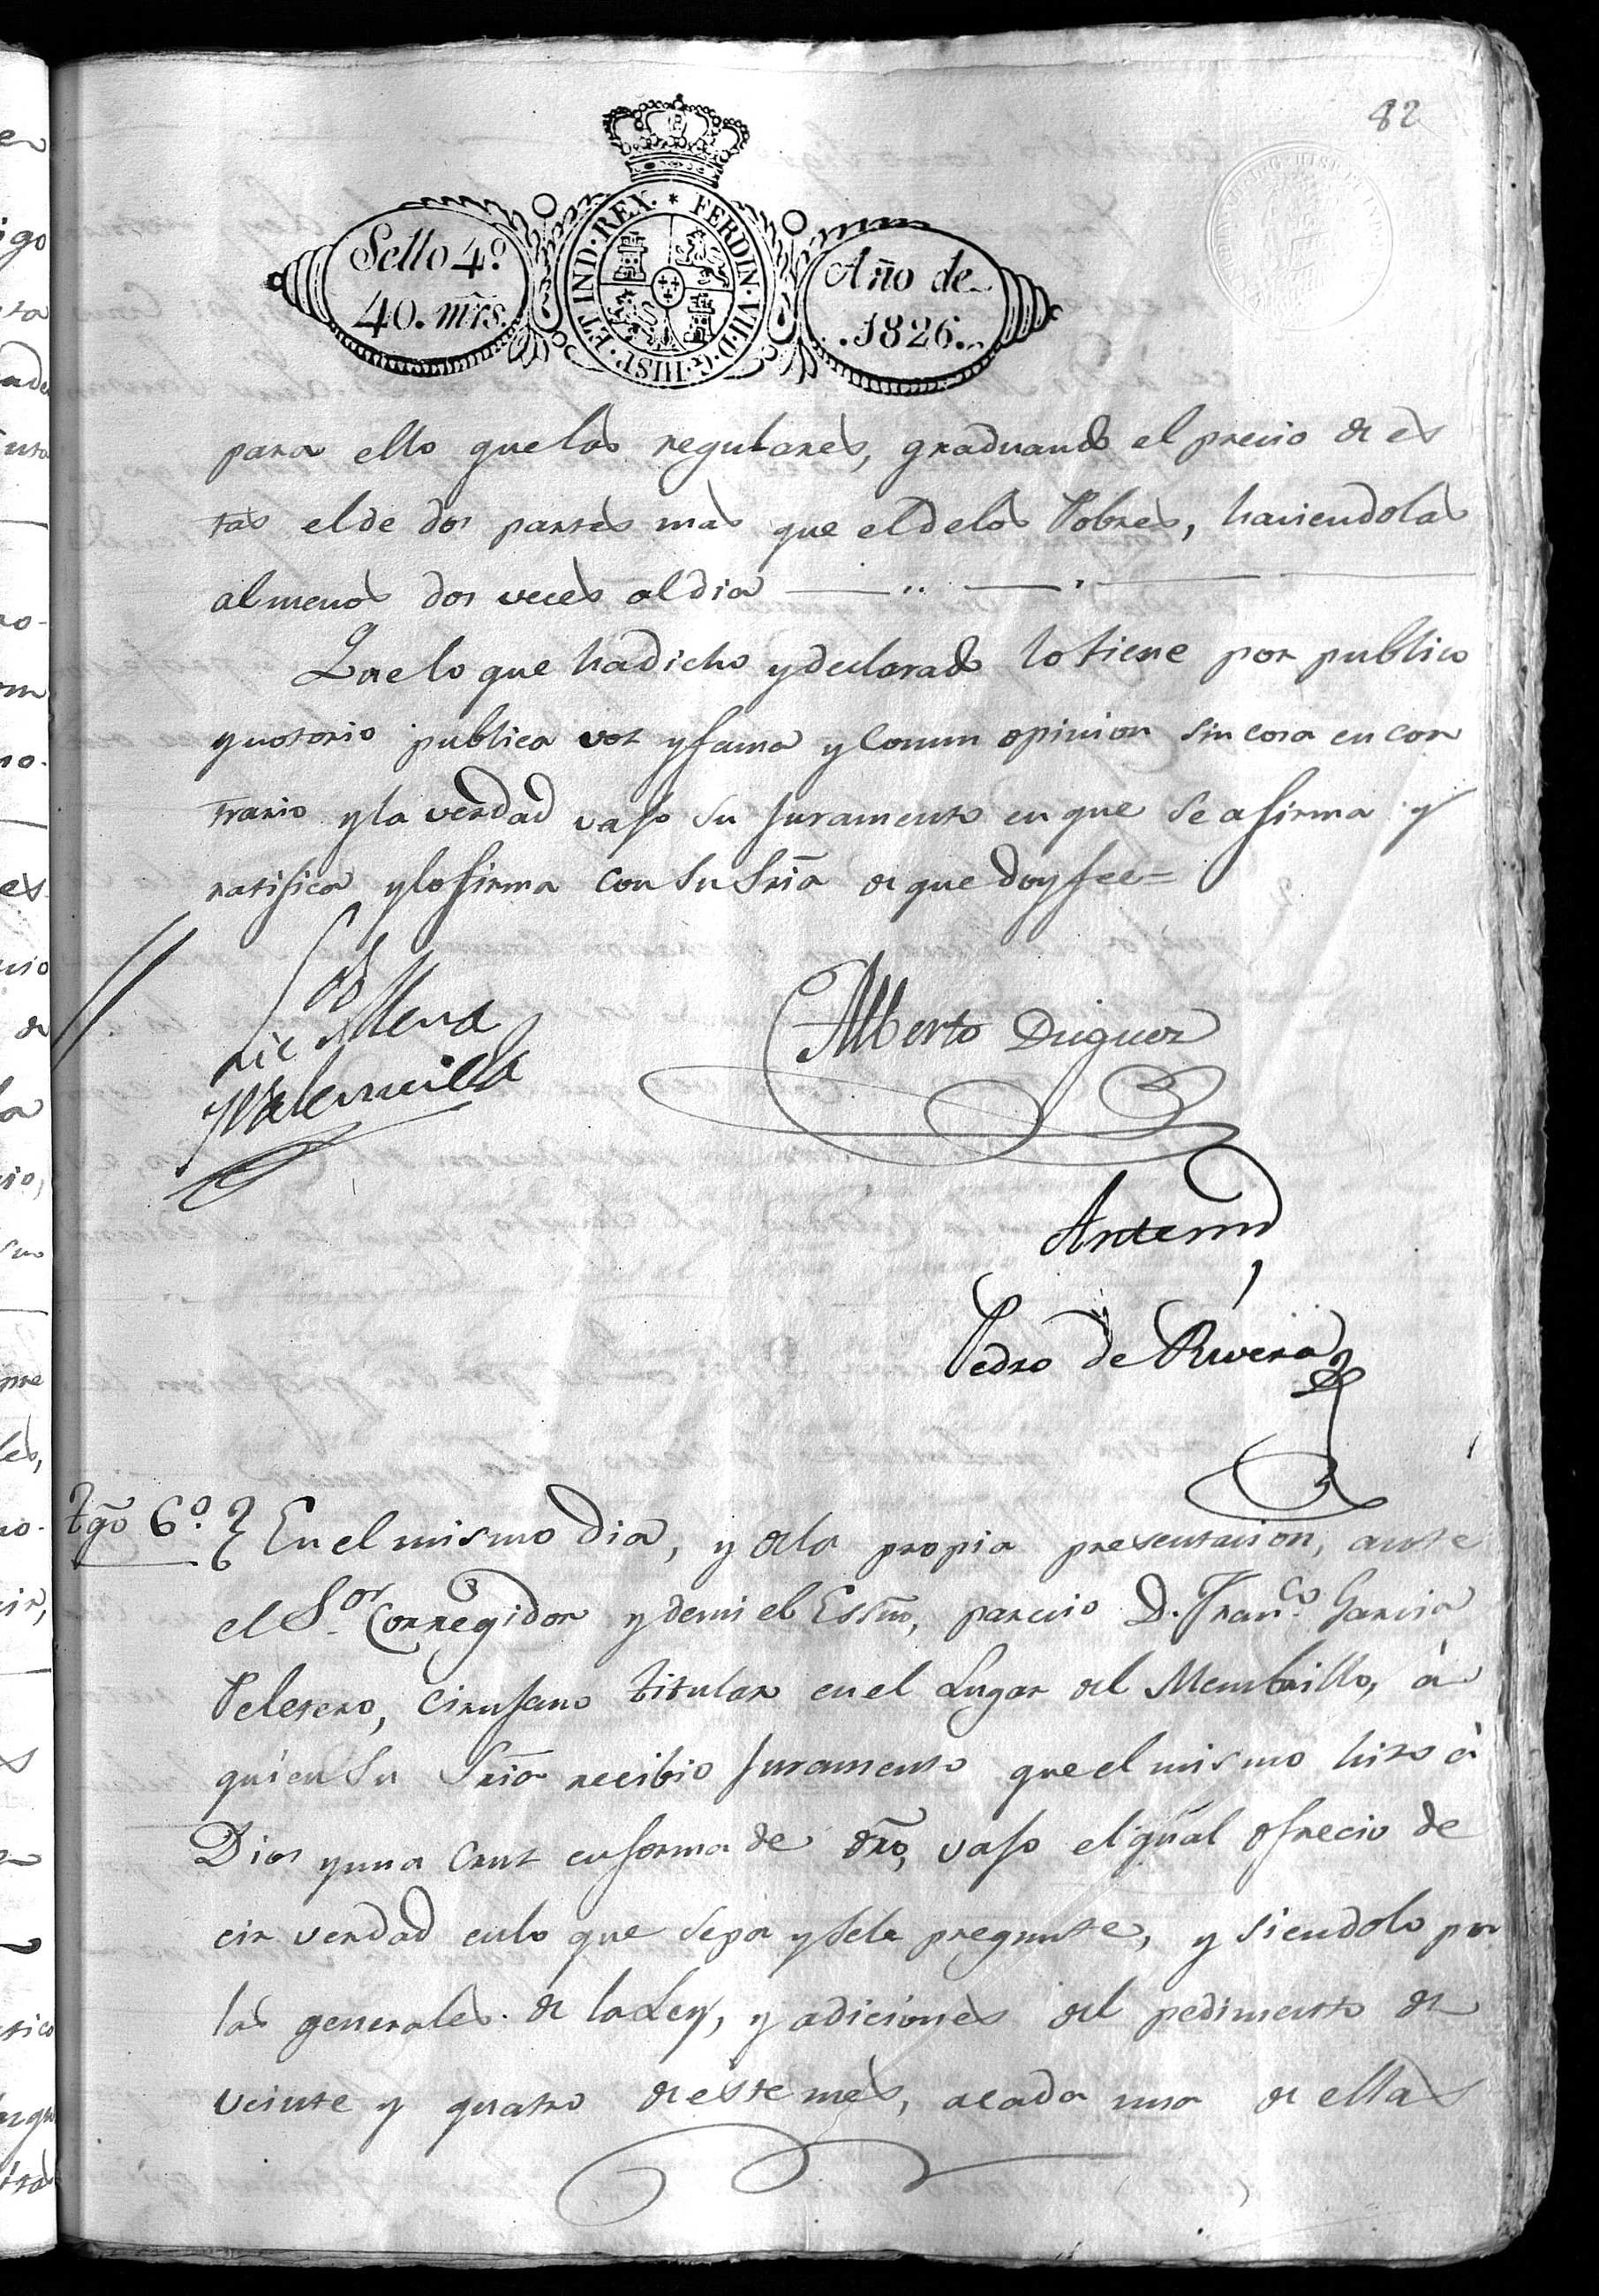 82
Sello 4º
40. mrs.
FERDIN·VII·D·G·HISP·ET IND·REX·
Año de
.1826.
para ello que las regulares, graduando el precio de es
tas el de dos partes mas que el delos Pobres, haciendolas
al menos dos veces al dia
Que lo que hadicho y declarado lo tiene por publico
y notorio publica voz y fama y Comun opinion sin cosa en con
trario y la verdad vajo su juramento en que se afirma y
ratifica y lo firma con Su Sria de que doy fee=
Lic Mena
y Valenzuela
Alberto Diguez
Antemi
Pedro de Rivera
tgo 6º
En el mismo dia, y dela propia presentacion, ante
el Sor Corregidor y demi el Essno, parecio D. Franco Garcia
Peletero, Cirujano titular en el Lugar del Membrillo, á
quien Su Sria recibio juramento que el mismo hizo á
Dios y una Cruz en forma de dro, vajo el qual ofrecio de
cir verdad en lo que sepa y sele pregunte, y siendolo por
las generales de la Ley, y adiciones del pedimento de
veinte y quatro de este mes, acada una de ellas